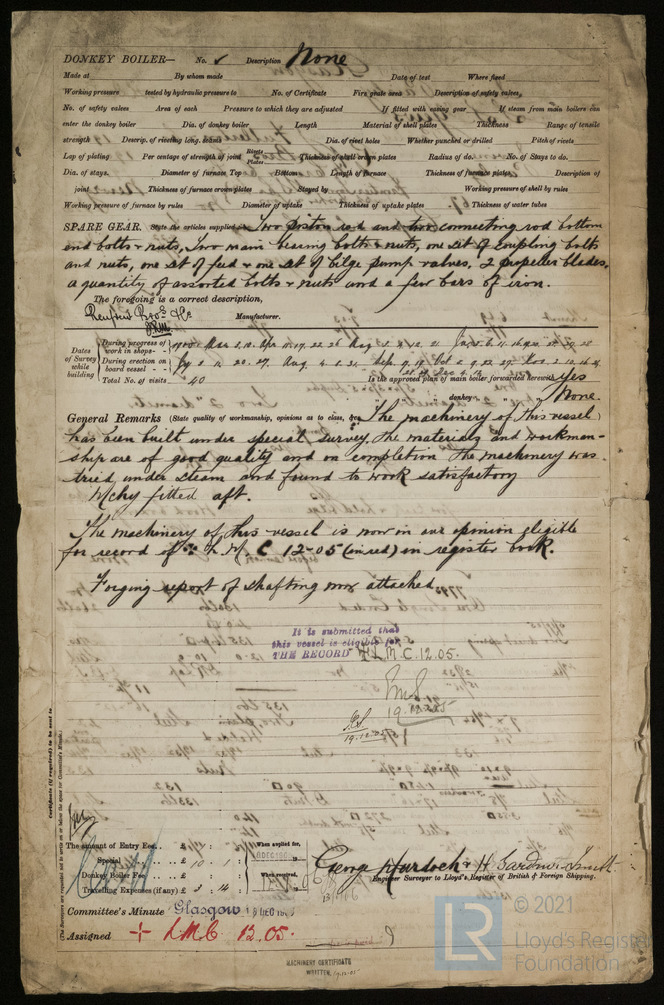 DONKEY BOILER— No. ✓ Description None
Made at By whom made Date of test Where fixed
Working pressure tested by hydraulic pressure to No. of Certificate Fire grate area Description of safety valves,
No. of safety valves Area of each Pressure to which they are adjusted If fitted with easing gear If steam from main boilers can
enter the donkey boiler Dia. of donkey boiler Length Material of shell plates Thickness Range of tensile
strength Descrip. of riveting long. seams Dia. of rivet holes Whether punched or drilled Pitch of rivets
Lap of plating Per centage of strength of joint Rivets Plates Thickness of shell crown plates Radius of do. No. of Stays to do.
Dia. of stays. Diameter of furnace Top Bottom Length of furnace Thickness of furnace plates Description of
joint Thickness of furnace crown plates Stayed by Working pressure of shell by rules
Working pressure of furnace by rules Diameter of uptake Thickness of uptake plates Thickness of water tubes
SPARE GEAR. State the articles supplied:— Two piston rod and two connecting rod bottom
end bolts & nuts, Two main bearing bolts & nuts, one set of coupling bolts
and nuts, one set of feed & one set of bilge pump valves, 2 propeller blades,
a quantity of assorted bolts & nuts and a few bars of iron.
The foregoing is a correct description,
Manufacturer.
Dates of Survey while building
During progress of work in shops - -
During erection on board vessel - - -
Total No. of visits 40 Is the approved plan of main boiler forwarded herewith Yes
" " " donkey " " " None
General Remarks (State quality of workmanship, opinions as to class, &c. The machinery of this vessel
has been built under special survey, the materials and workman-
ship are of good quality and on completion the machinery was
tried under steam and found to work satisfactory
Mchy fitted aft.
The machinery of this vessel is now in our opinion eligible
for record of ✠ L.M.C 12-05 (in red) in register book.
Forging report of shafting now attached.
It is submitted that
this vessel is eligible for
THE RECORD ✠ L M.C. 12.05.
19.12.05
19.12.05
Certificate (if required) to be sent to
The amount of Entry Fee. . £
Special . . . . £ 10 : 1 :
Donkey Boiler Fee . . . £
Travelling Expenses (if any) £ 3 : 14 :
When applied for,
When received,
George Murdoch & H. Gardner-Smith
Engineer Surveyor to Lloyd's Register of British & Foreign Shipping.
Committee's Minute Glasgow 18 DEC 1905
Assigned + L.M.C. 12.05.
MACHINERY CERTIFICATE
WRITTEN. 19.12.05
© 2021
LR
Lloyd's Register
Foundation